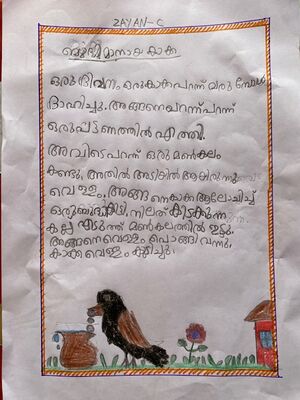 ZAYAN-C
ബുദ്ധിമാനായ കാക്ക
ഒരു ദിവസം ഒരു കാക്ക പറന്ന് വരു മ്പോൾ
ദാഹിച്ചു. അങ്ങനെ പറന്ന് പറന്ന്
ഒരു പട്ടണത്തിൽ എത്തി.
അവിടെ പറന്ന് ഒരു മൺകലം
കണ്ടു, അതിൽ അടിയിൽ ആയിരുന്നു
വെള്ളം. അങ്ങനെ കാക്ക ആലോചിച്ച്
ഒരു ബുദ്ധി നിലത് കിടക്കുന്ന
കല്ല് എടുത്ത് മൺകലത്തിൽ ഇട്ടു.
അങ്ങനെ വെള്ളം പൊങ്ങി വന്നു.
കാക്ക വെള്ളം കുടിച്ചു.